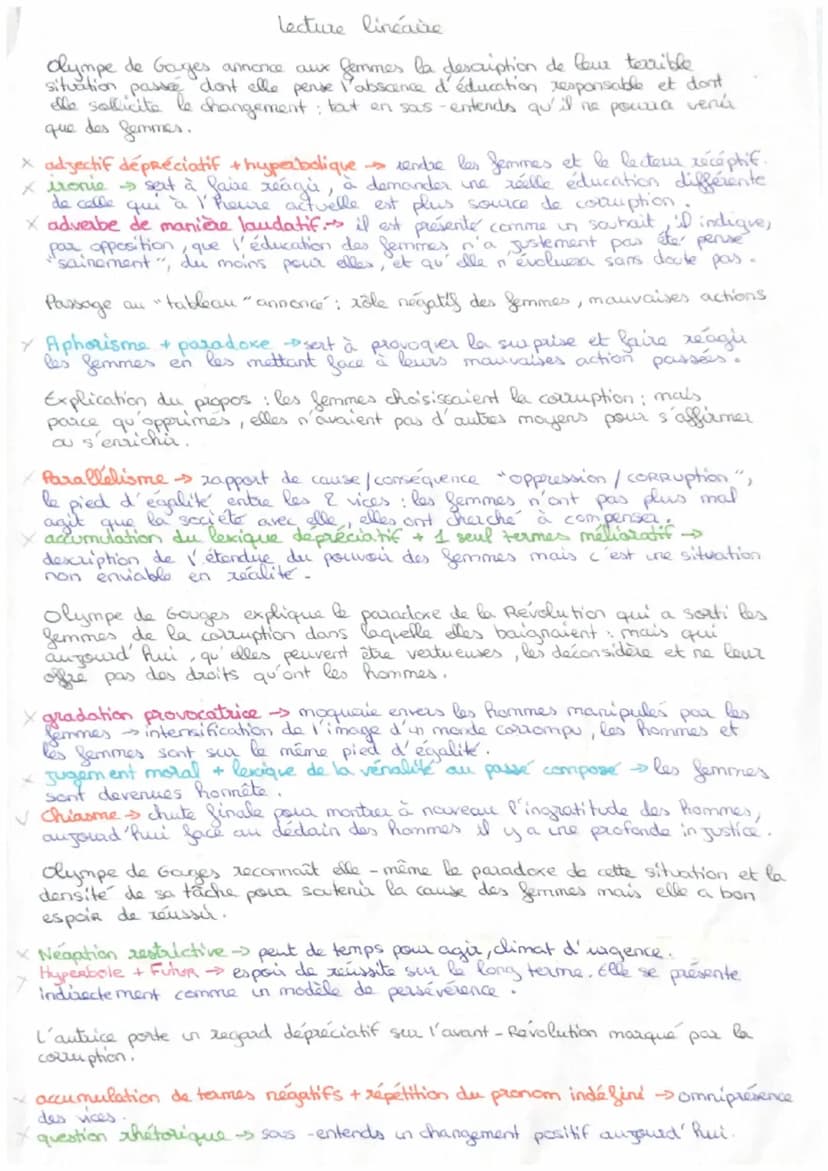 Lecture linéaire
Olympe de Gouges annonce aux femmes la description de leur terrible
situation passée dont elle pense l'abscence d'éducation responsable et dont
elle sollicite le changement : tout en sous-entends qu'il ne pourra venir
que des femmes.
× adjectif dépréciatif + hyperbolique → rendre les femmes et le lecteur réceptif.
× ironie → sert à faire réagir, à demander une réelle éducation différente
de celle qui à l'heure actuelle est plus source de corruption.
× adverbe de manière laudatif → il est présenté comme un souhait, il indique,
par opposition, que l'éducation des femmes n'a justement pas été pensé
"sainement", du moins pour elles, et qu'elle n'évoluera sans doute pas.
Passage au "tableau" annoncé : rôle négatif des femmes, mauvaises actions
× Aphorisme + paradoxe → sert à provoquer la surprise et faire réagir
les femmes en les mettant face à leurs mauvaises action passées.
Explication du propos : les femmes choisissaient la corruption ; mais
parce qu'opprimés, elles n'avaient pas d'autres moyens pour s'affirmer
ou s'enrichir.
× Parallélisme → rapport de cause/conséquence "oppression / corruption",
le pied d'égalité entre les 2 vices : les femmes n'ont pas plus mal
agit que la société avec elle, elles ont cherché à compenser.
× accumulation du lexique dépréciatif + 1 seul termes mélioratif →
description de l'étendue du pouvoir des femmes mais c'est une situation
non enviable en réalité.
Olympe de Gouges explique le paradoxe de la Révolution qui a sorti les
femmes de la corruption dans laquelle elles baignaient : mais qui
aujourd'hui, qu'elles peuvent être vertueuses, les déconsidère et ne leur
offre pas des droits qu'ont les hommes.
× gradation provocatrice → moquerie envers les hommes manipulés par les
femmes → intensification de l'image d'un monde corrompu, les hommes et
les femmes sont sur le même pied d'égalité.
× Jugement moral + lexique de la vénalité au passé composé → les femmes
sont devenues honnête.
√ Chiasme → chute finale pour montrer à nouveau l'ingratitude des hommes,
aujourd'hui face au dédain des hommes il y a une profonde injustice.
Olympe de Gouges reconnaît elle-même le paradoxe de cette situation et la
densité de sa tâche pour soutenir la cause des femmes mais elle a bon
espoir de réussir.
× Négation restrictive → peut de temps pour agir, climat d'urgence.
Hyperbole + Futur → espoir de réussite sur le long terme. Elle se présente
indirectement comme un modèle de persévérence.
L'autrice porte un regard dépréciatif sur l'avant-Révolution marqué par la
corruption.
× accumulation de termes négatifs + répétition du pronom indéfini → omniprésence
des vices.
× question rhétorique → sous-entends un changement positif aujourd'hui.